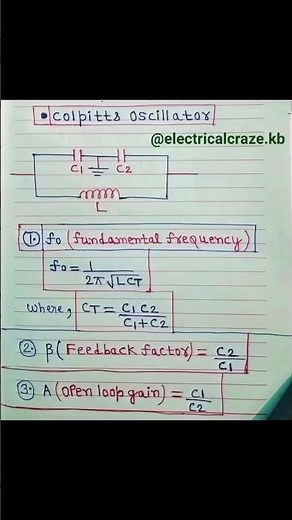 • Colpitts Oscillator
@electricalcraze.kb
C1 C2
L
1. fo (fundamental frequency)
fo = 1 / 2π√LCT
where, CT = C1 C2 / C1 + C2
2. β (Feedback factor) = C2 / C1
3. A (open loop gain) = C1 / C2